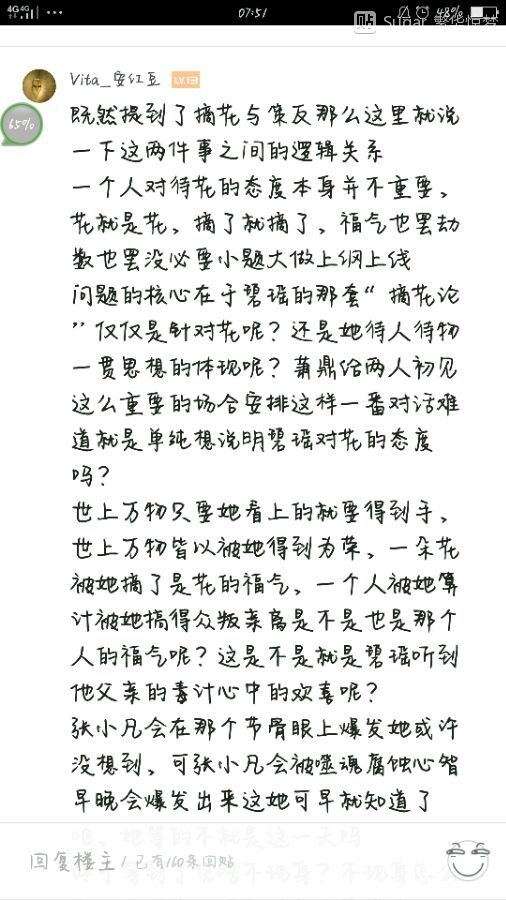 4G 4G
07:51
48%
贴 Sugar_繁华惊梦
Vita_安红豆
65%
既然提到了摘花与策反那么这里就说
一下这两件事之间的逻辑关系
一个人对待花的态度本身并不重要，
花就是花，摘了就摘了，福气也罢劫
数也罢没必要小题大做上纲上线
问题的核心在于碧瑶的那套“摘花论
”仅仅是针对花呢？还是她待人待物
一贯思想的体现呢？萧鼎给两人初见
这么重要的场合安排这样一番对话难
道就是单纯想说明碧瑶对花的态度
吗？
世上万物只要她看上的就要得到手，
世上万物皆以被她得到为荣，一朵花
被她摘了是花的福气，一个人被她算
计被她搞得众叛亲离是不是也是那个
人的福气呢？这是不是就是碧瑶听到
他父亲的毒计心中的欢喜呢？
张小凡会在那个节骨眼上爆发她或许
没想到，可张小凡会被噬魂腐蚀心智
早晚会爆发出来这她可早就知道了
吧，她等的不就是这一天吗
回复楼主/已有160条回贴